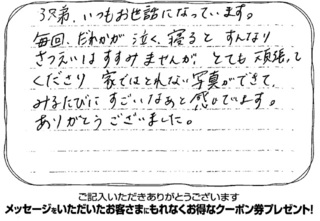 3兄弟、いつもお世話になっています。
毎回、だれかが泣く、寝ると すんなり
さつえいはすすみませんが、とても頑張って
くださり 家ではとれない写真ができて、
みるたびに すごいなあと感じています。
ありがとうございました。
ご記入いただきありがとうございます
メッセージをいただいたお客さまにもれなくお得なクーポン券プレゼント!